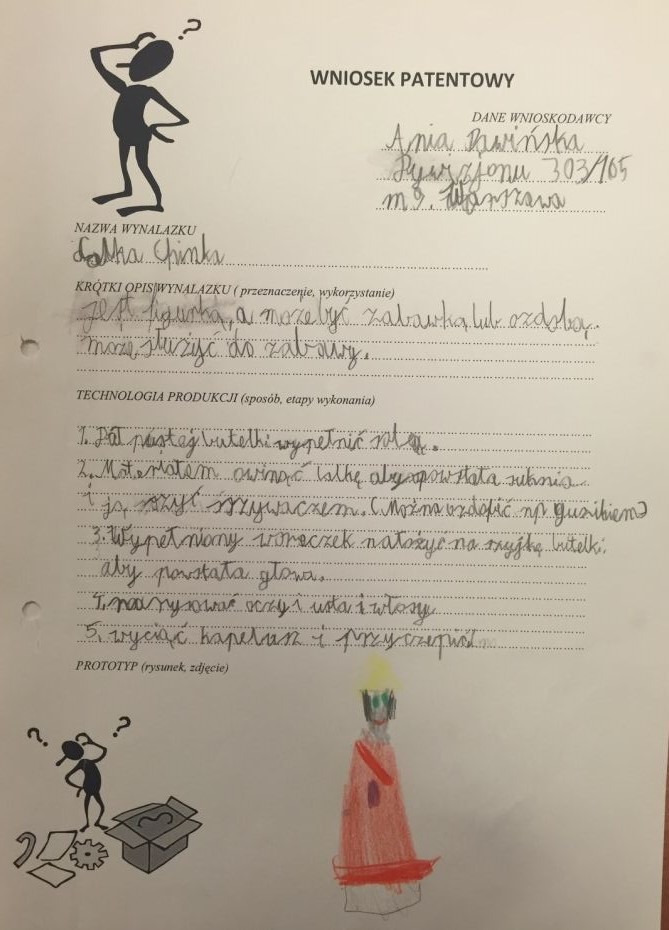 ?
WNIOSEK PATENTOWY
DANE WNIOSKODAWCY
Ania
Dywizjonu 303/165
m 9. Warszawa
NAZWA WYNALAZKU
Lalka Chinka
KRÓTKI OPIS WYNALAZKU ( przeznaczenie, wykorzystanie)
jest figurką, a może być zabawką lub ozdobą.
może służyć do zabawy.
TECHNOLOGIA PRODUKCJI (sposób, etapy wykonania)
1. Pół pustej butelki wypełnić solą.
2. Materiałem owinąć lalkę aby powstała suknia
i ją zszyć zszywaczem. (Można ozdobić np. guzikiem)
3. Wypełniony woreczek nałożyć na szyjkę butelki
aby powstała głowa.
4. narysować oczy i usta i włosy
5. wyciąć kapelusz i przyczepić
PROTOTYP (rysunek, zdjęcie)
? ?